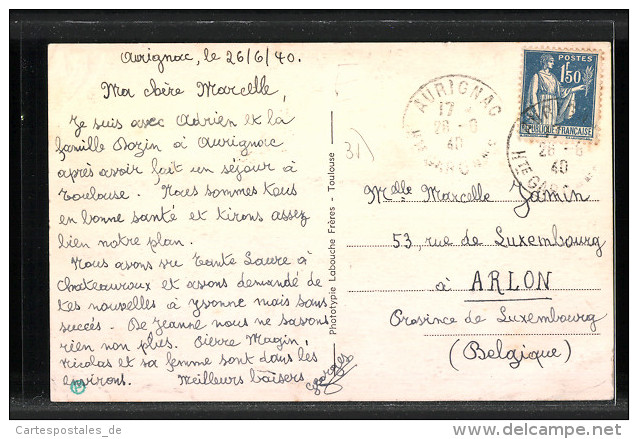 Aurignac, le 26/6/40.
Ma chère Marcelle,
Je suis avec Adrien et la
famille Bozin à Aurignac
après avoir fait un séjour à
Toulouse. Nous sommes tous
en bonne santé et tirons assez
bien notre plan.
Nous avons vu Tante Laure à
Chateauroux et avons demandé de
tes nouvelles à Yvonne mais sans
succès. De Jeanne nous ne savons
rien non plus. Pierre Magin,
Nicolas et sa femme sont dans les
environs. Meilleurs baisers
Georges
Phototypie Labouche Frères - Toulouse
31)
AURIGNAC
17
26 - 6
40
Hte GARONNE
POSTES
1F50
REPUBLIQUE FRANÇAISE
26 - 6
40
Hte GARONNE
Melle Marcelle Jamin
53, rue de Luxembourg
à ARLON
Province de Luxembourg
(Belgique)
Cartespostales_de
www.delcampe.net